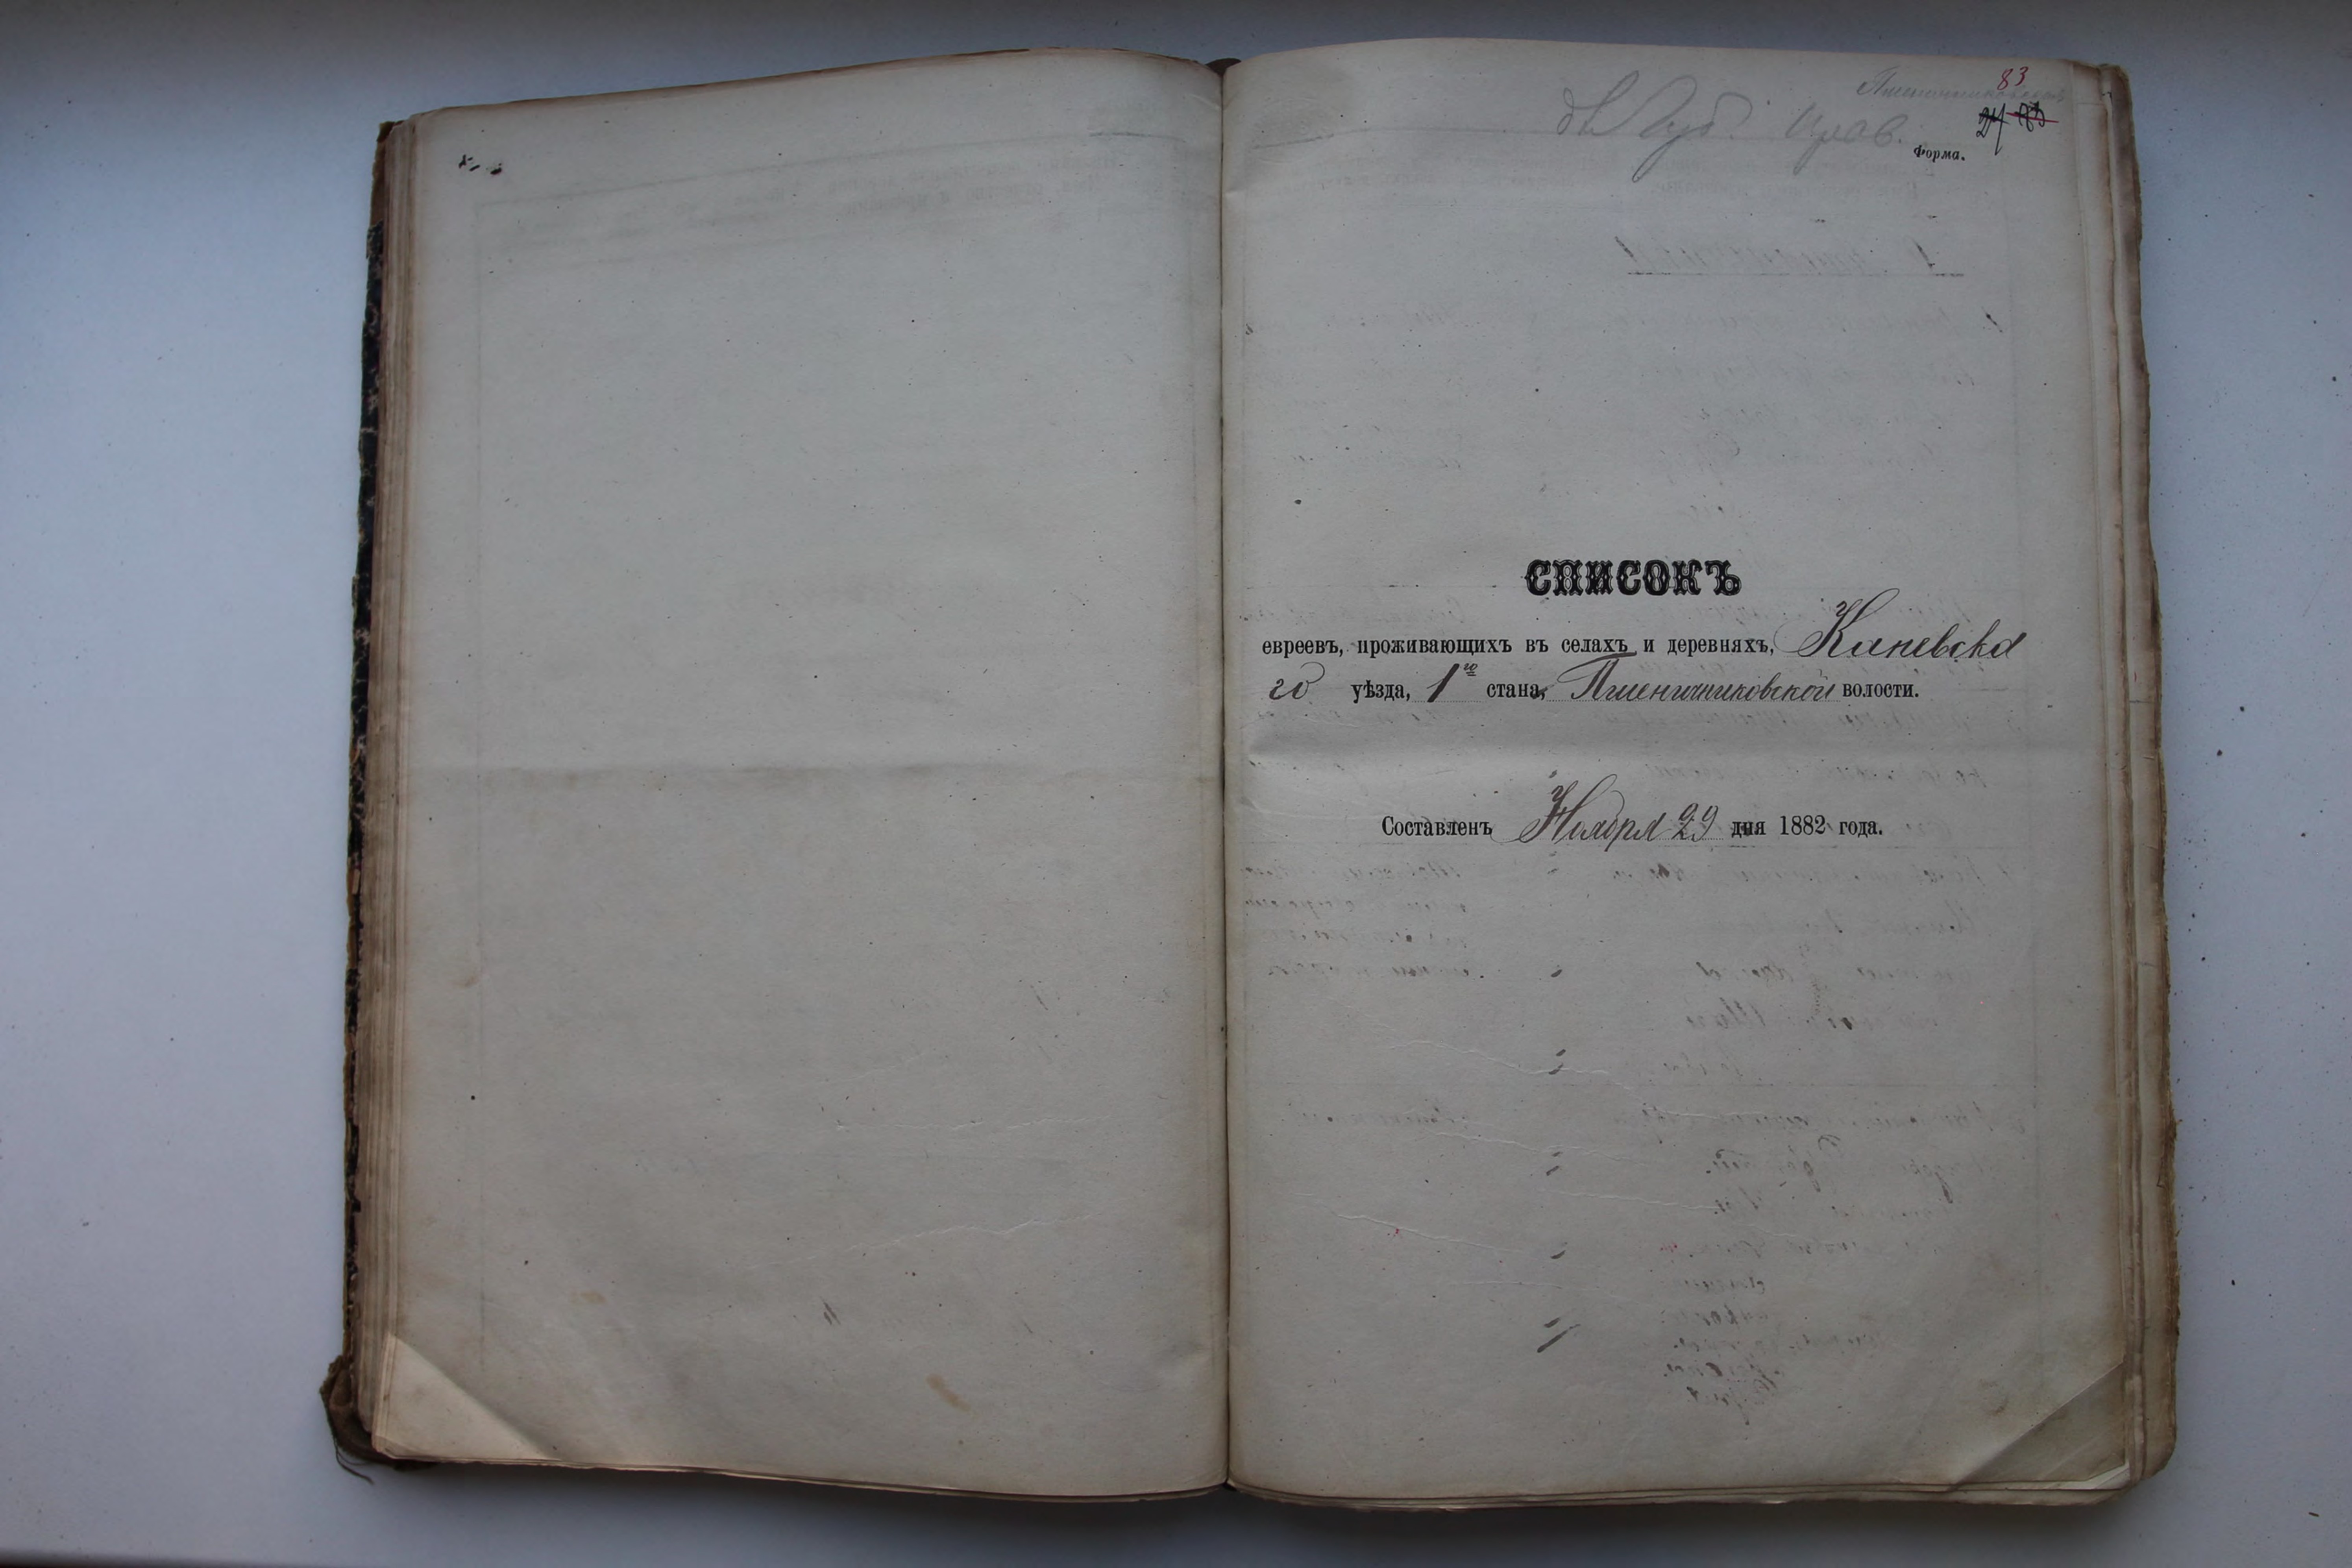 83
Пшеничниковской
дѣ Губ. Прав.
27 83
Форма.
СПИСОКЪ
евреевъ, проживающихъ въ селахъ и деревняхъ, Каневска
го уѣзда, 1го стана, Пшеничниковской волости.
Составленъ Ноября 29 дня 1882 года.